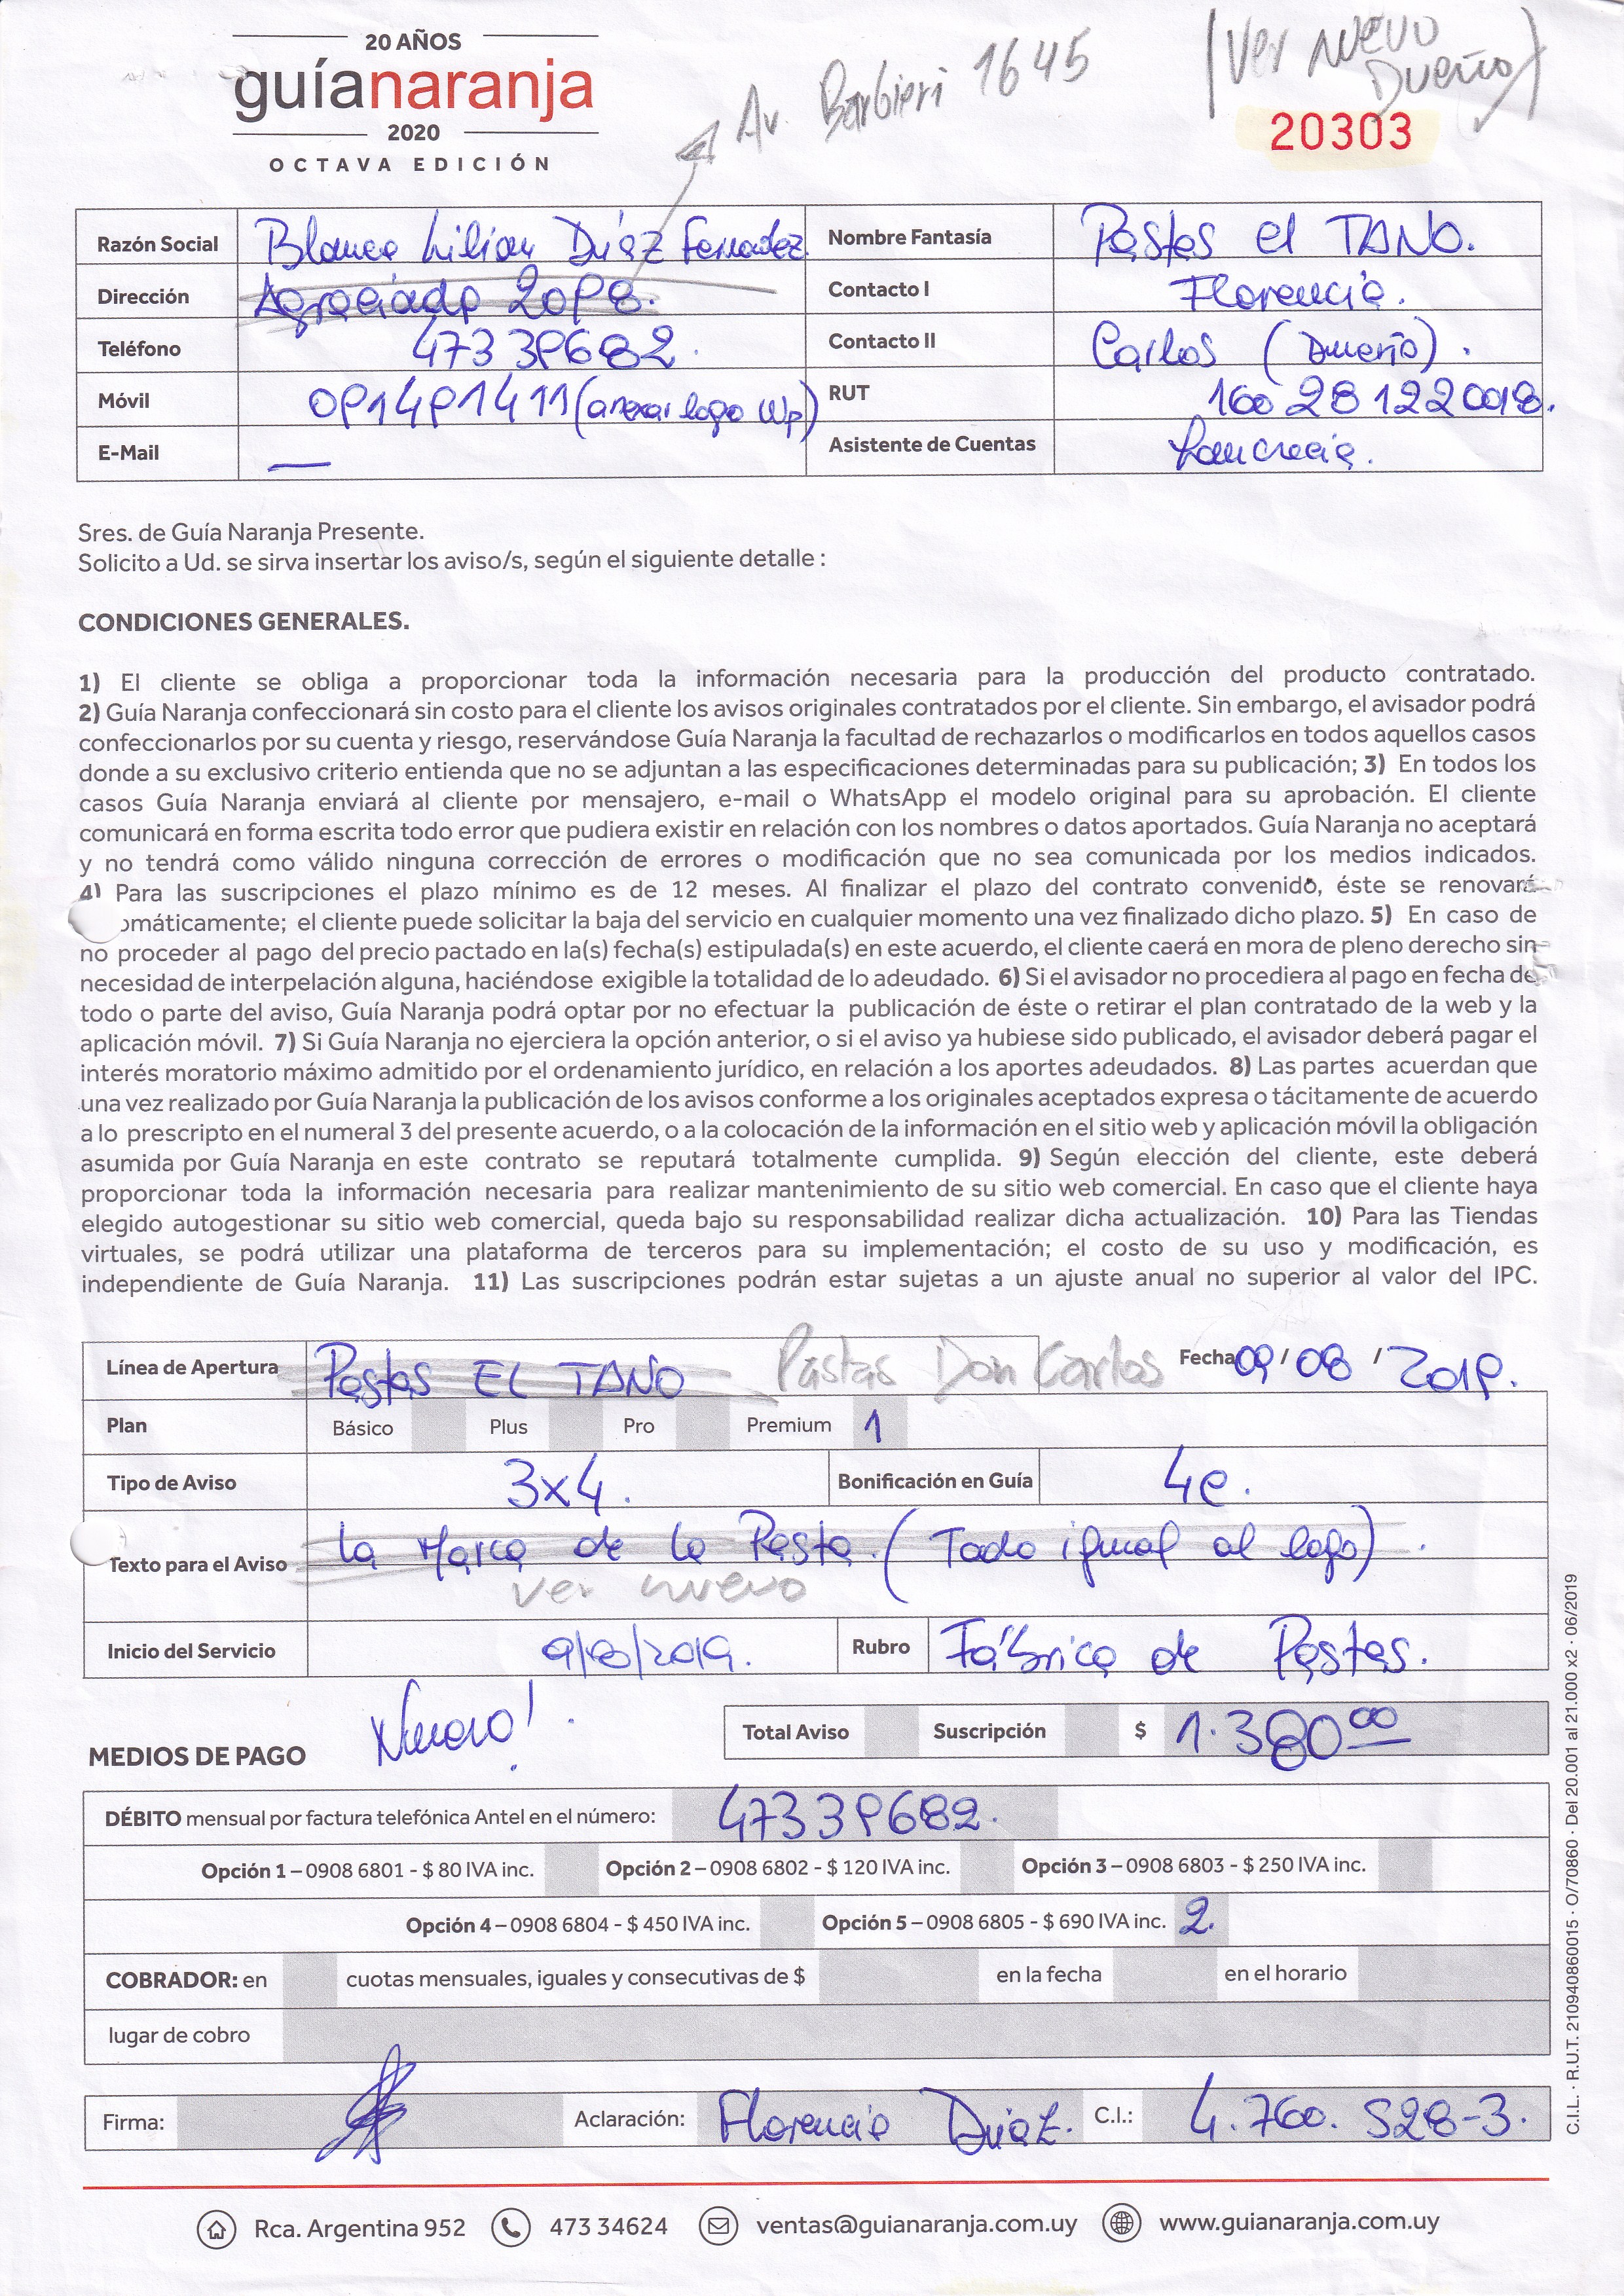 20 AÑOS
guíanaranja
2020
OCTAVA EDICIÓN
Av. Barbieri 1645
(Ver nuevo Dueño)
20303
Razón Social Blanca Lilian Díaz Fernandez Nombre Fantasía Pastas el TANO.
Dirección Agraciada 2098. Contacto I Florencia.
Teléfono 473 39682. Contacto II Carlos (Dueño).
Móvil 091491411 (anexar logo Wp) RUT 160281220018.
E-Mail — Asistente de Cuentas
Sres. de Guía Naranja Presente.
Solicito a Ud. se sirva insertar los aviso/s, según el siguiente detalle :
CONDICIONES GENERALES.
1) El cliente se obliga a proporcionar toda la información necesaria para la producción del producto contratado.
2) Guía Naranja confeccionará sin costo para el cliente los avisos originales contratados por el cliente. Sin embargo, el avisador podrá
confeccionarlos por su cuenta y riesgo, reservándose Guía Naranja la facultad de rechazarlos o modificarlos en todos aquellos casos
donde a su exclusivo criterio entienda que no se adjuntan a las especificaciones determinadas para su publicación; 3) En todos los
casos Guía Naranja enviará al cliente por mensajero, e-mail o WhatsApp el modelo original para su aprobación. El cliente
comunicará en forma escrita todo error que pudiera existir en relación con los nombres o datos aportados. Guía Naranja no aceptará
y no tendrá como válido ninguna corrección de errores o modificación que no sea comunicada por los medios indicados.
4) Para las suscripciones el plazo mínimo es de 12 meses. Al finalizar el plazo del contrato convenido, éste se renovará
omáticamente; el cliente puede solicitar la baja del servicio en cualquier momento una vez finalizado dicho plazo. 5) En caso de
no proceder al pago del precio pactado en la(s) fecha(s) estipulada(s) en este acuerdo, el cliente caerá en mora de pleno derecho sin
necesidad de interpelación alguna, haciéndose exigible la totalidad de lo adeudado. 6) Si el avisador no procediera al pago en fecha de
todo o parte del aviso, Guía Naranja podrá optar por no efectuar la publicación de éste o retirar el plan contratado de la web y la
aplicación móvil. 7) Si Guía Naranja no ejerciera la opción anterior, o si el aviso ya hubiese sido publicado, el avisador deberá pagar el
interés moratorio máximo admitido por el ordenamiento jurídico, en relación a los aportes adeudados. 8) Las partes acuerdan que
una vez realizado por Guía Naranja la publicación de los avisos conforme a los originales aceptados expresa o tácitamente de acuerdo
a lo prescripto en el numeral 3 del presente acuerdo, o a la colocación de la información en el sitio web y aplicación móvil la obligación
asumida por Guía Naranja en este contrato se reputará totalmente cumplida. 9) Según elección del cliente, este deberá
proporcionar toda la información necesaria para realizar mantenimiento de su sitio web comercial. En caso que el cliente haya
elegido autogestionar su sitio web comercial, queda bajo su responsabilidad realizar dicha actualización. 10) Para las Tiendas
virtuales, se podrá utilizar una plataforma de terceros para su implementación; el costo de su uso y modificación, es
independiente de Guía Naranja. 11) Las suscripciones podrán estar sujetas a un ajuste anual no superior al valor del IPC.
Línea de Apertura Pastas EL TANO Pastas Don Carlos Fecha 09 / 08 / 2019.
Plan Básico Plus Pro Premium 1
Tipo de Aviso 3x4. Bonificación en Guía 4e.
Texto para el Aviso La Marca de la Pasta. (Todo igual al logo).
ver nuevo
Inicio del Servicio 9/8/2019. Rubro Fábrica de Pastas.
Nuevo!
MEDIOS DE PAGO
Total Aviso Suscripción $ 1.380 00
DÉBITO mensual por factura telefónica Antel en el número: 47339682.
Opción 1 – 0908 6801 - $ 80 IVA inc. Opción 2 – 0908 6802 - $ 120 IVA inc. Opción 3 – 0908 6803 - $ 250 IVA inc.
Opción 4 – 0908 6804 - $ 450 IVA inc. Opción 5 – 0908 6805 - $ 690 IVA inc. 2.
COBRADOR: en cuotas mensuales, iguales y consecutivas de $ en la fecha en el horario
lugar de cobro
Firma: Aclaración: Florencia Diaz. C.I.: 4.760.528-3.
Rca. Argentina 952 473 34624 ventas@guianaranja.com.uy www.guianaranja.com.uy
C.I.L. · R.U.T. 210940860015 · O/70860 · Del 20.001 al 21.000 x2 · 06/2019